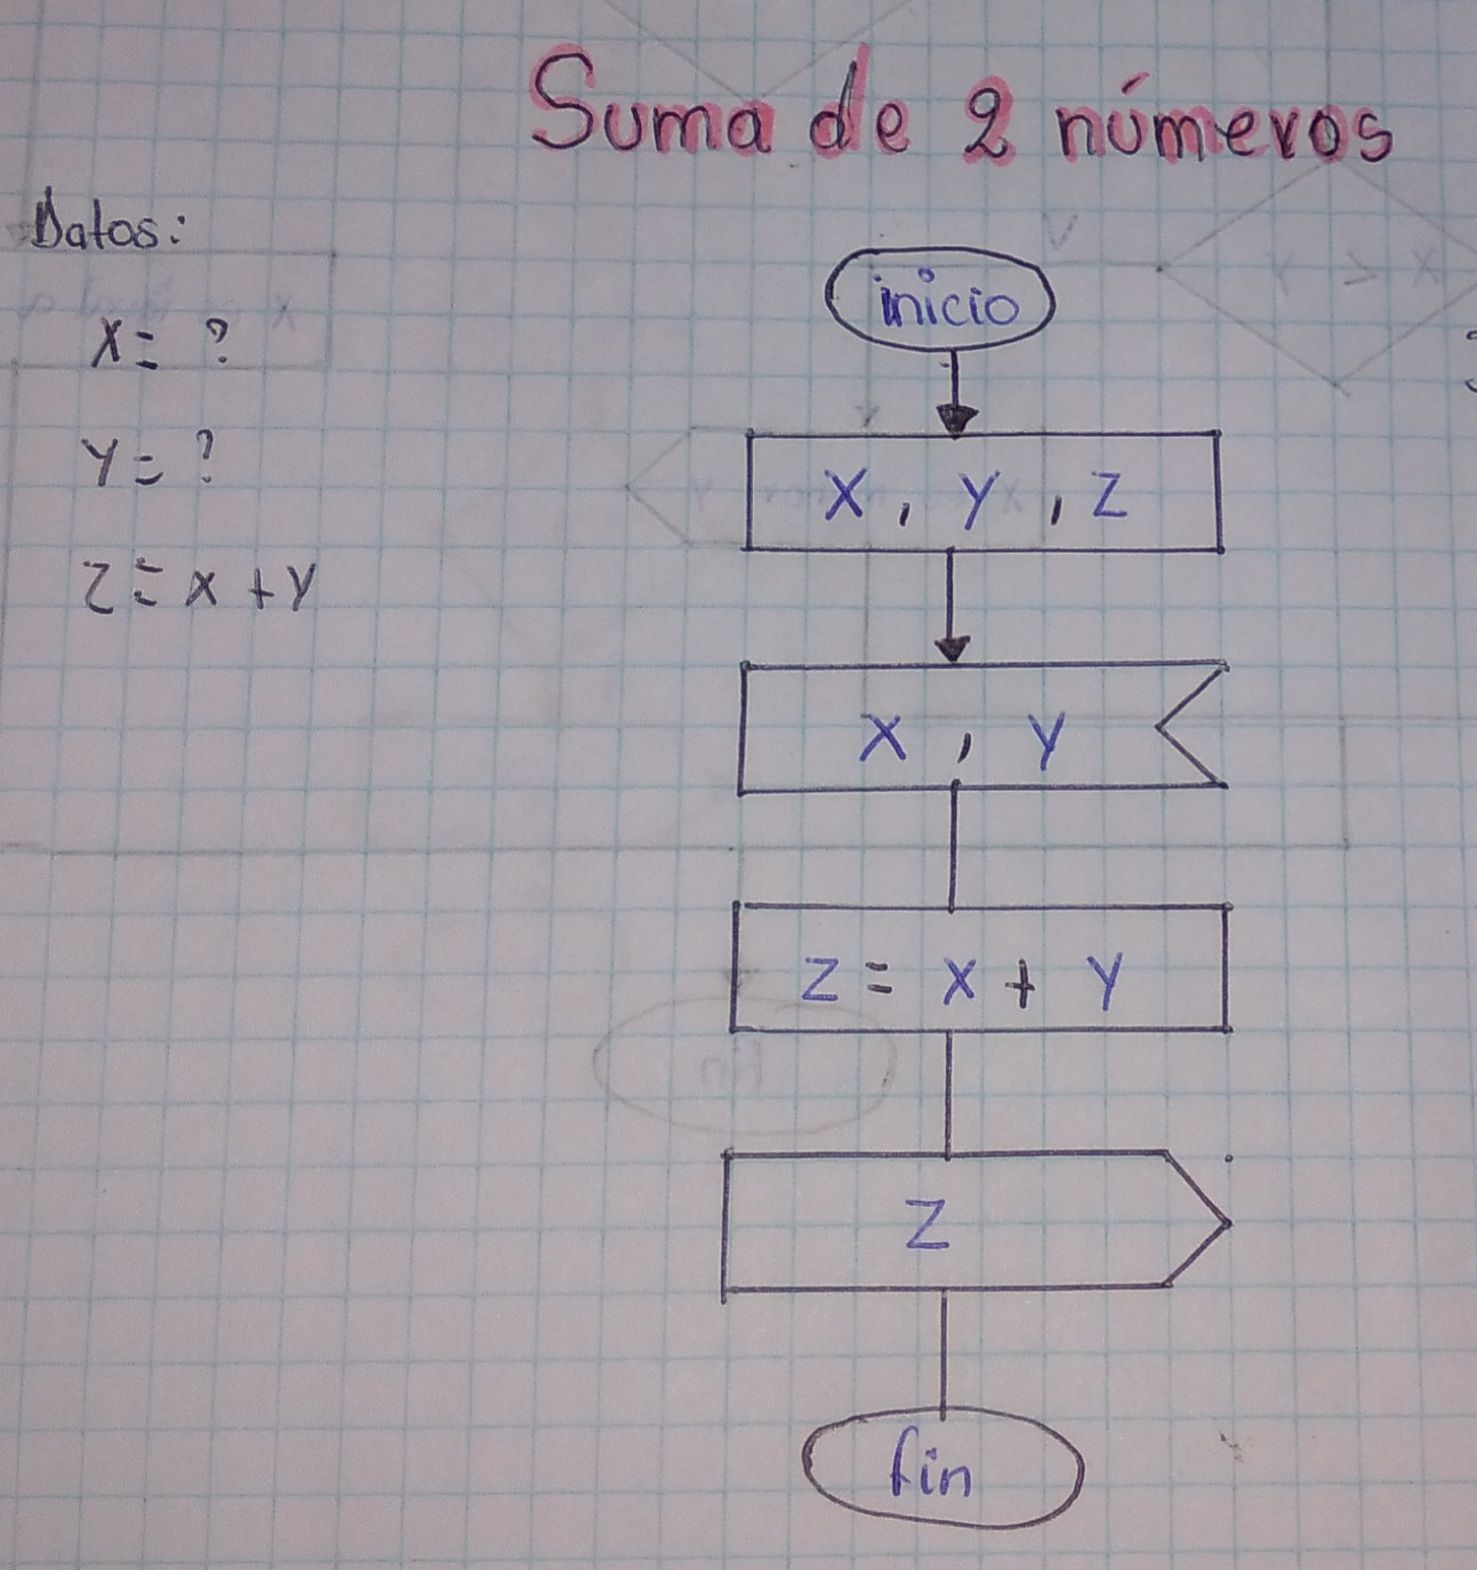 Suma de 2 números
Datos:
X = ?
Y = ?
Z = X + Y
inicio
X, Y, Z
X, Y
Z = X + Y
Z
fin